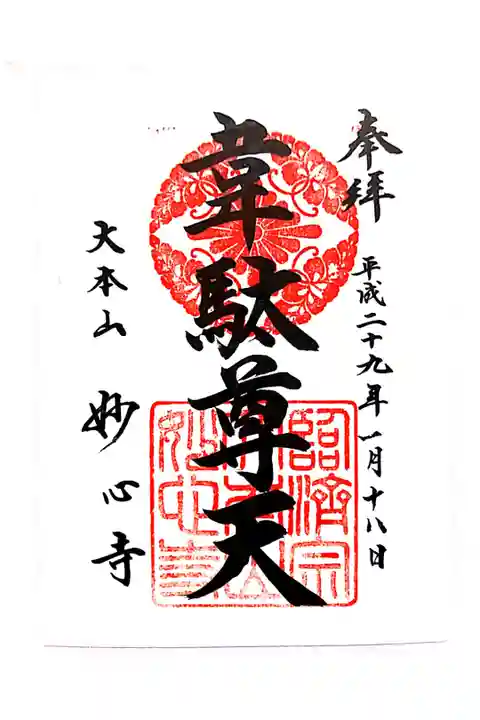 奉拝
平成二十九年一月十八日
韋駄尊天
大本山 妙心寺
臨濟宗
大本山
妙心寺